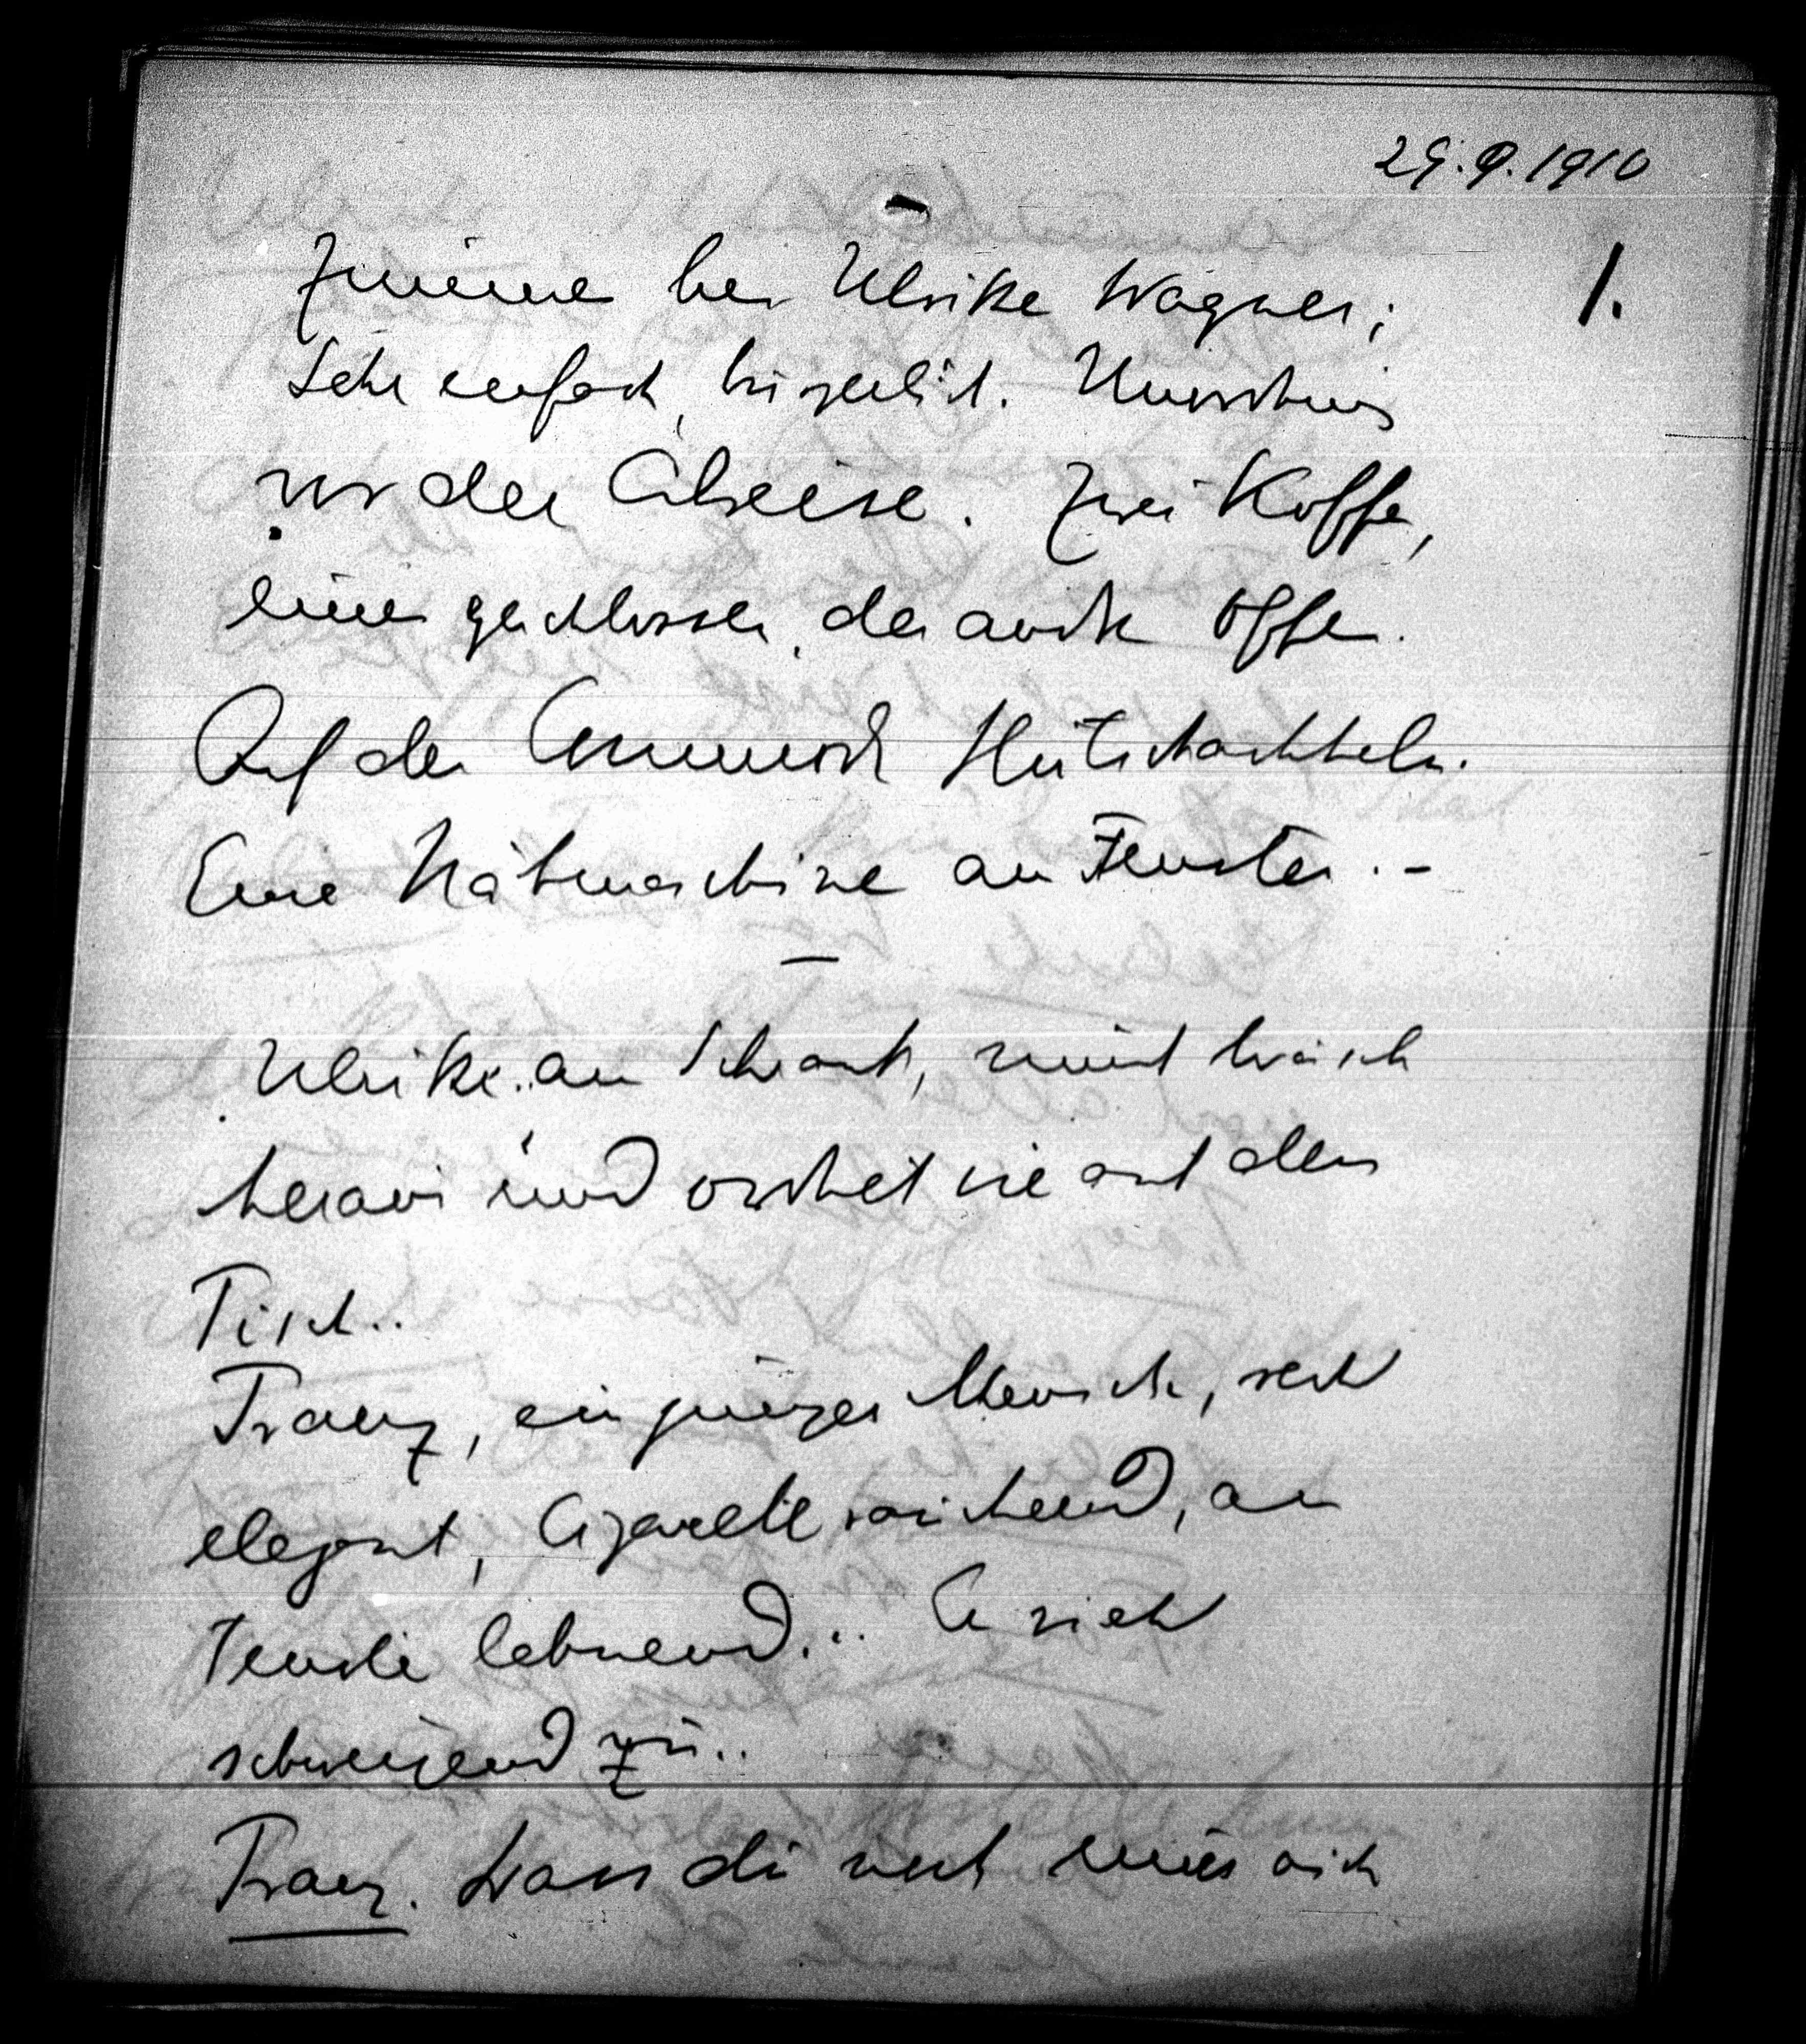 29.9.1910
1.
Zimmer bei Ulrike Wagner;
Sehr einfach, bürgerlich. Unordnung
vor der Abreise. Zwei Koffer,
einer geschlossen, der andre offen.
Auf der Commode Hutschachteln.
Eine Nähmaschine am Fenster. –
–
Ulrike.. am Schrank, nimmt Wäsche
heraus und ordnet sie auf dem
Tisch..
Franz, ein junger Mensch, recht
elegant, Cigarette rauchend, am
Fenster lehnend... Er sieht
schweigend zu..
Franz. Dass du recht